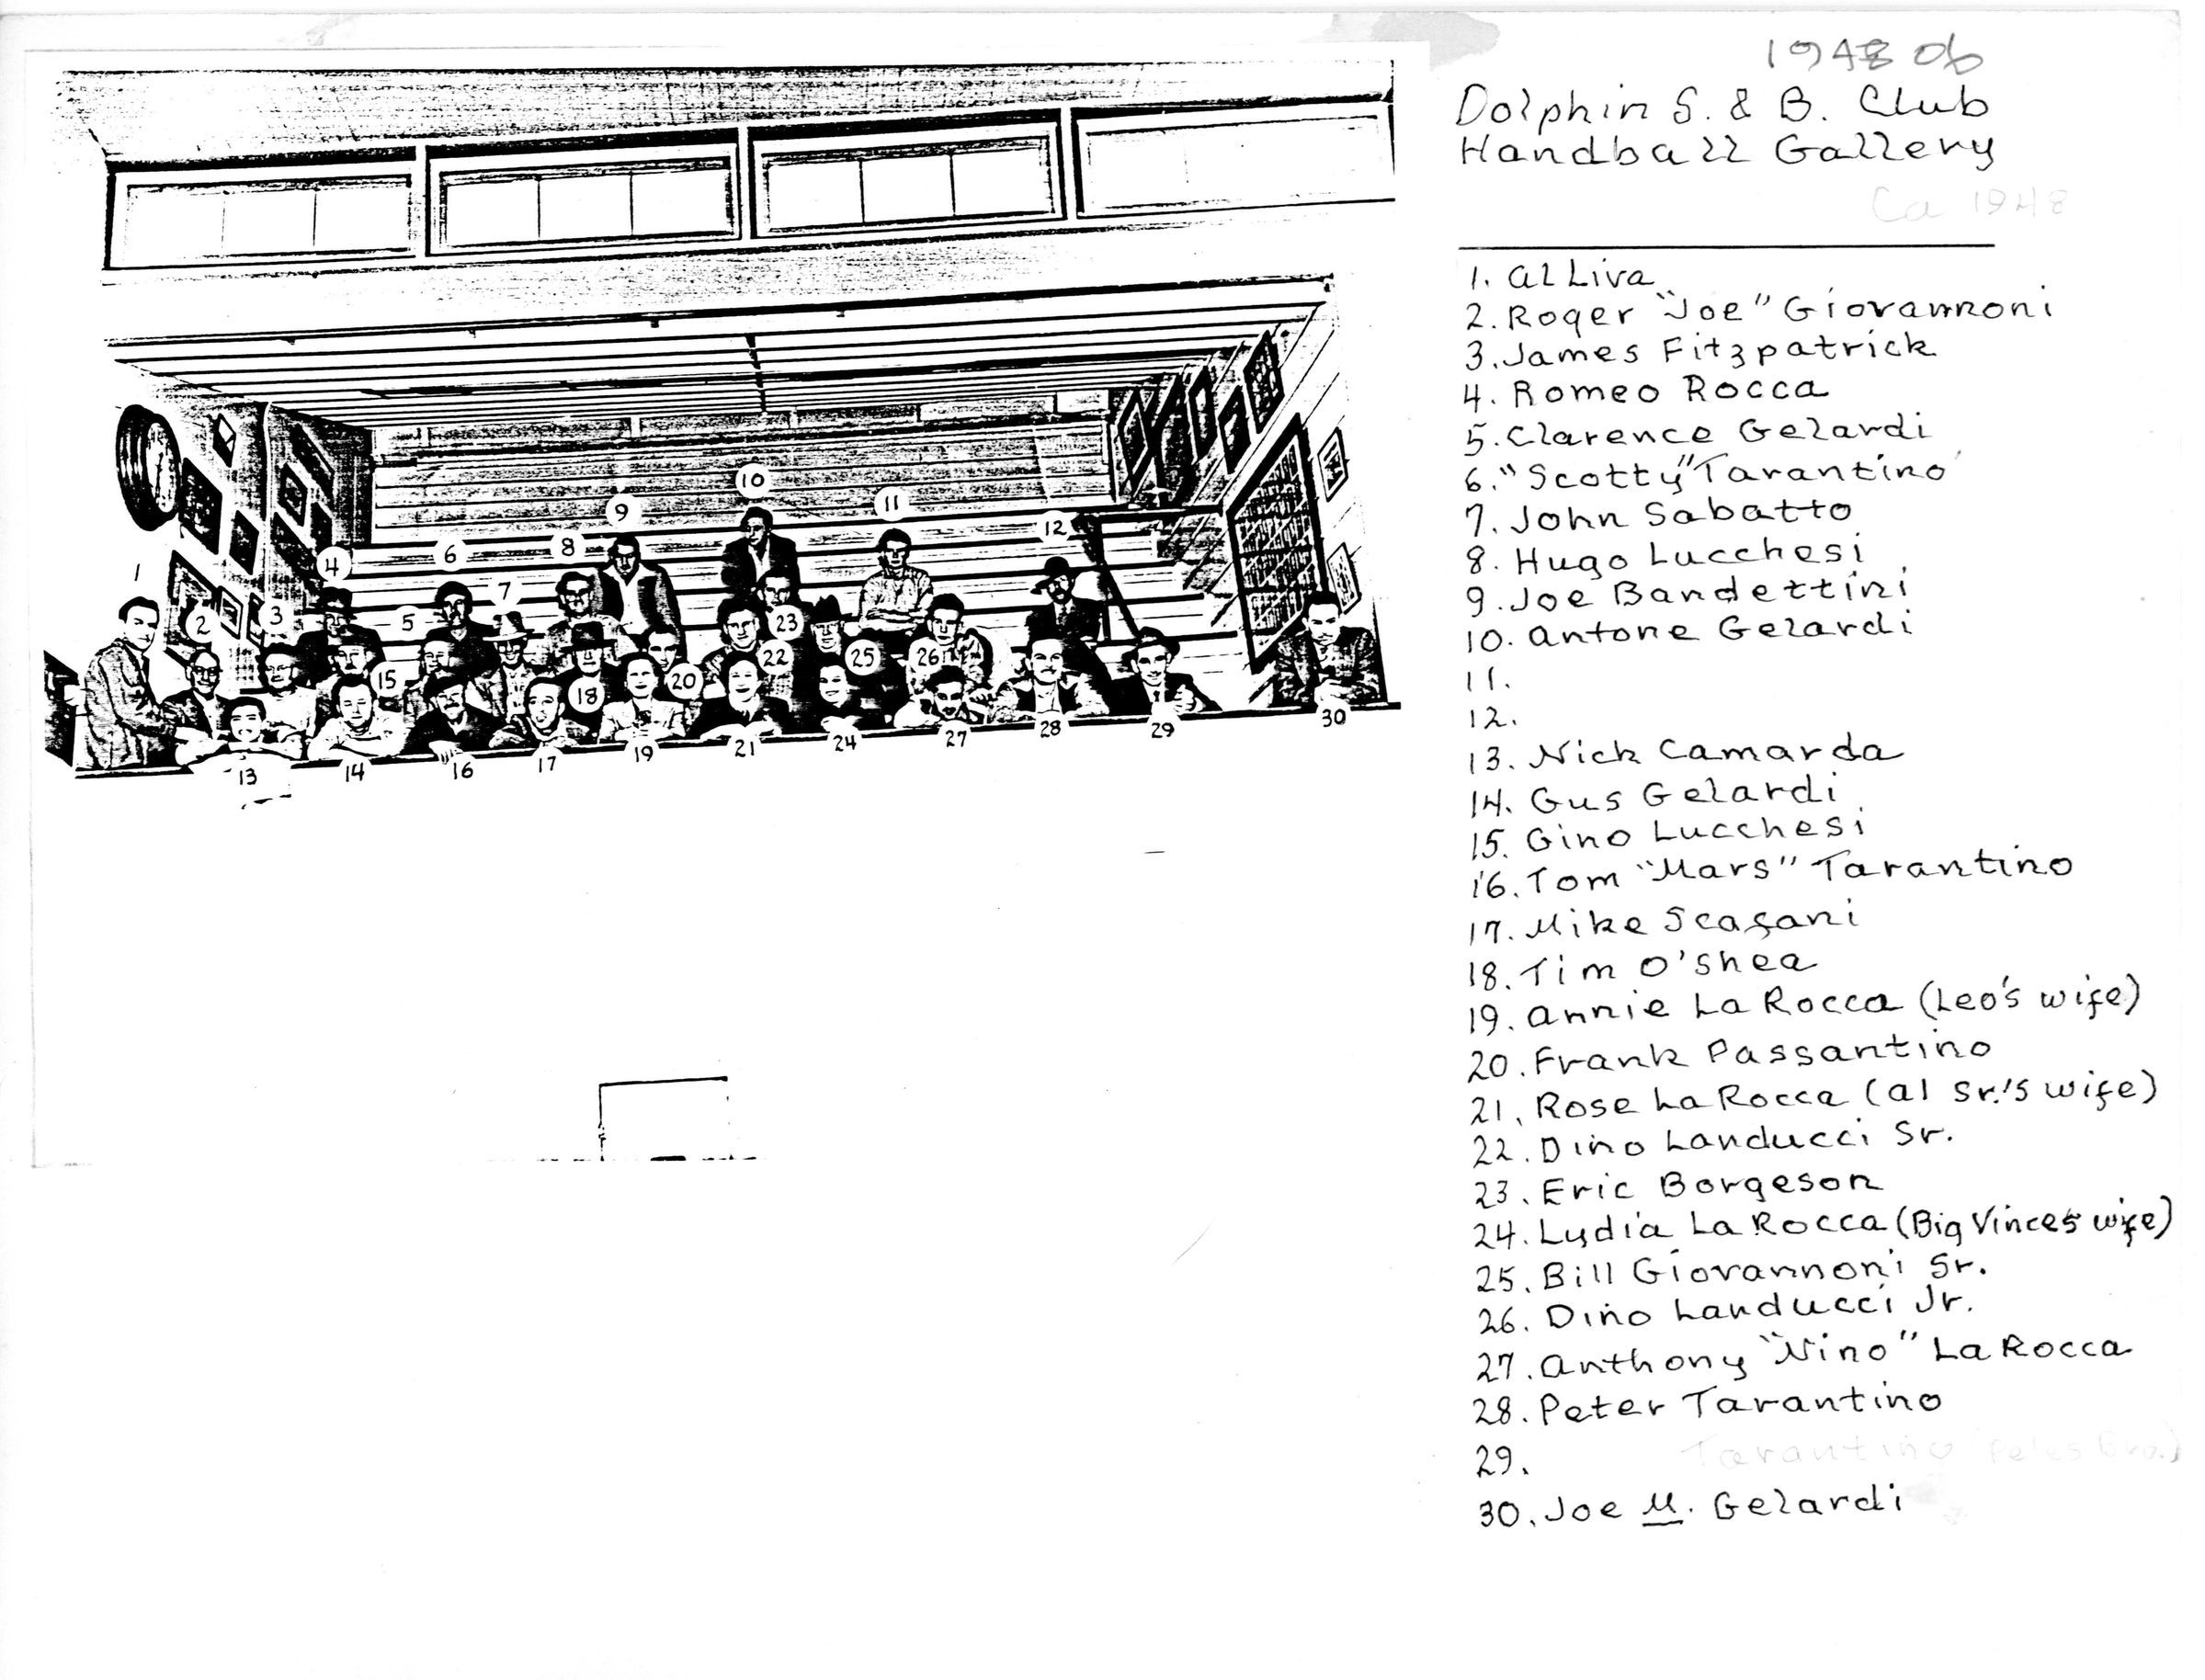 1948 06
Dolphin S. & B. Club
Handball Gallery
Ca 1948
1. Al Liva
2. Roger "Joe" Giovannoni
3. James Fitzpatrick
4. Romeo Rocca
5. Clarence Gelardi
6. "Scotty" Tarantino
7. John Sabatto
8. Hugo Lucchesi
9. Joe Bandettini
10. Antone Gelardi
11.
12.
13. Nick Camarda
14. Gus Gelardi
15. Gino Lucchesi
16. Tom "Mars" Tarantino
17. Mike Scafani
18. Tim O'Shea
19. Annie La Rocca (Leo's wife)
20. Frank Passantino
21. Rose La Rocca (Al Sr.'s wife)
22. Dino Landucci Sr.
23. Eric Borgeson
24. Lydia La Rocca (Big Vince's wife)
25. Bill Giovannoni Sr.
26. Dino Landucci Jr.
27. Anthony "Nino" La Rocca
28. Peter Tarantino
29. Tarantino (Pete's Bro.)
30. Joe M. Gelardi
10
9
11
12
8
6
4
1
7
5
3
2
23
22
25
26
15
20
18
30
28
29
27
24
21
19
17
16
14
13